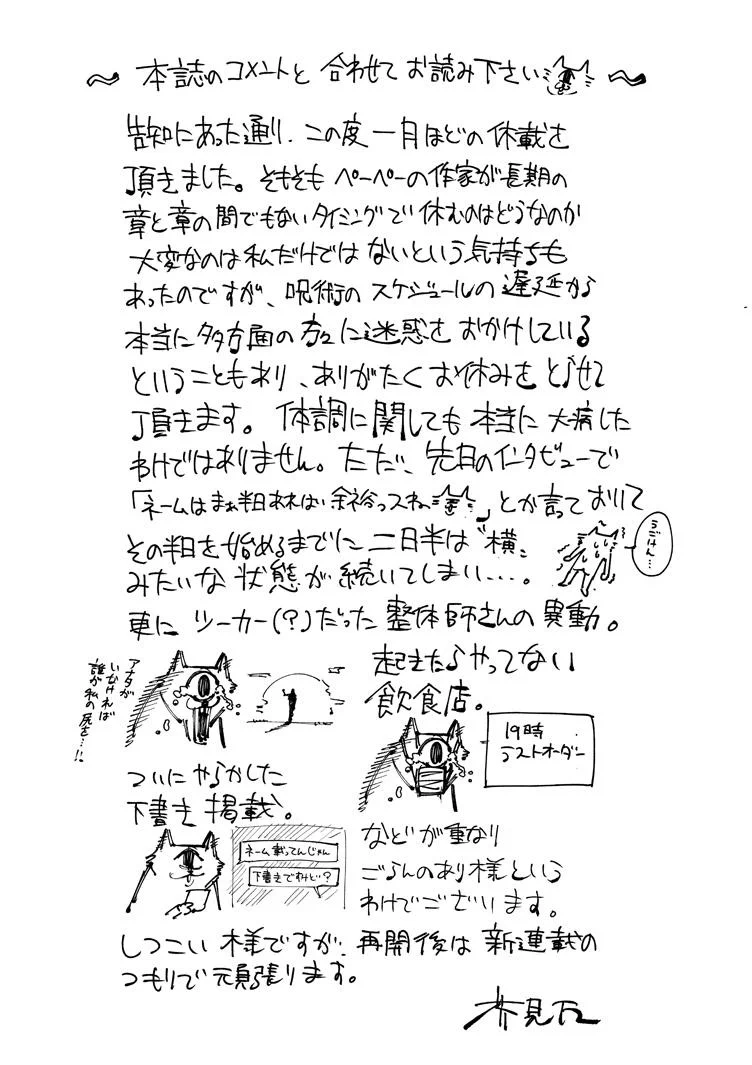 〜 本誌のコメントと 合わせて お読み下さい 〜
告知にあった通り、この度一月ほどの休載を
頂きました。そもそも ペーペーの作家が長期の
章と章の間でもないタイミングで 休むのはどうなのか
大変なのは私だけでは ないという気持ちも
あったのですが、呪術の スケジュールの 遅延から
本当に多方面の方々に迷惑を おかけしている
ということもあり、ありがたく お休みを とらせて
頂きます。 体調に関しても 本当に 大病した
わけではありません。ただ、先日のインタビューで
「ネームはまぁ半日あれば 余裕っスね 」とか言っておいて
その半日を始めるまでに 二日半は "横"
みたいな 状態が 続いてしまい…。
うごけん…
更に ツーカー(?)だった 整体師さんの 異動。
アナタが
いなければ
誰が私の尻を…!!
起きたらやってない
飲食店。
19時
ラストオーダー
ついに やらかした
下書き 掲載。
ネーム載ってんじゃん
下書きですけど?
などが重なり
ごらんのあり様という
わけでございます。
しつこい 様ですが、再開後は 新連載の
つもりで 頑張ります。
芥見下々